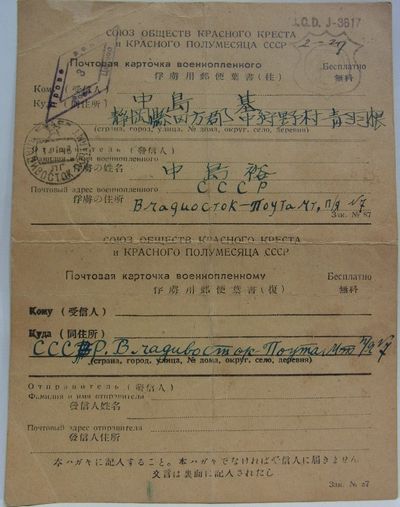 J.C.D. J-3817
2-27
СОЮЗ ОБЩЕСТВ КРАСНОГО КРЕСТА
и КРАСНОГО ПОЛУМЕСЯЦА СССР
Почтовая карточка военнопленного Бесплатно
俘虜用郵便葉書(往) 無料
Кому (受信人) 中島 基
Куда (同住所) 静 縣 方郡 中狩野村 青羽根
(страна, город, улица, № дома, округ, село, деревня)
(發信人)
俘虜の姓名 中島 裕
Почтовый адрес военнопленного СССР
俘虜の住所 Владиосток-Почтамт, п/я №7
Зак. № 87
СОЮЗ ОБЩЕСТВ КРАСНОГО КРЕСТА
и КРАСНОГО ПОЛУМЕСЯЦА СССР
Почтовая карточка военнопленному Бесплатно
俘虜用郵便葉書(復) 無料
Кому (受信人)
Куда (同住所)
СССР, Владивосток Почтамт п/я №7
(страна, город, улица, № дома, округ, село, деревня)
Отправитель (發信人)
Фамилия и имя отправителя
發信人姓名
Почтовый адрес отправителя
發信人住所
本ハガキに記入すること。本ハガキでなければ受信人に届きません
文言は裏面に記入されたし
Зак. № 87